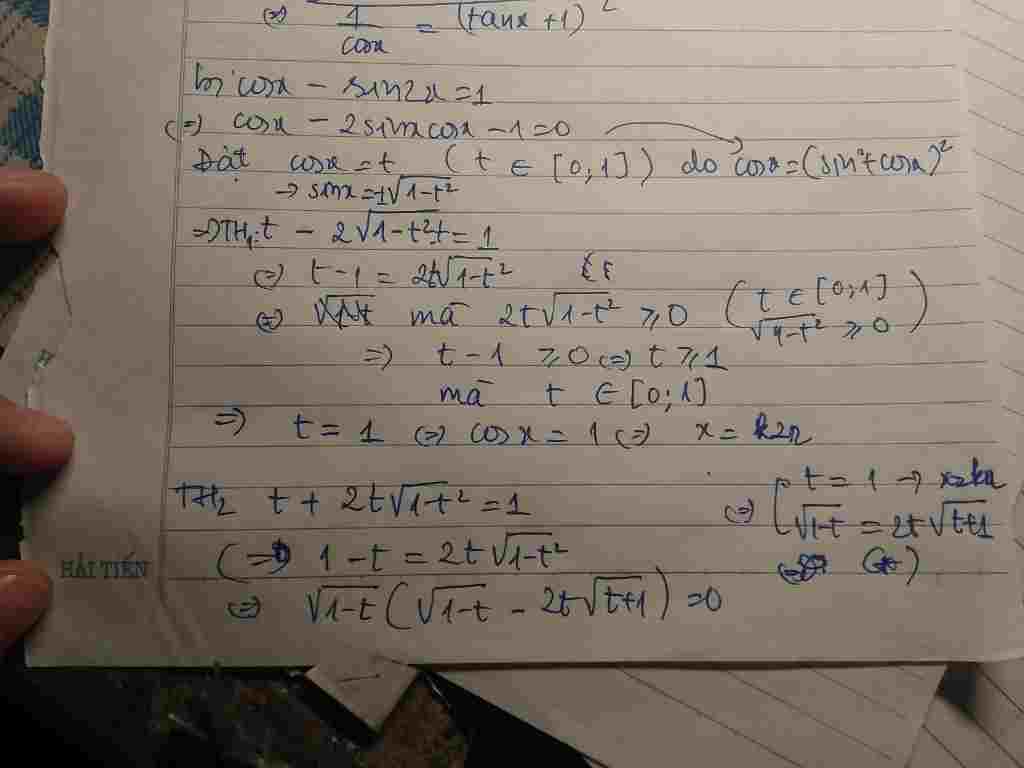 (=) 1/cosx = (tanx+1)²
b, cosx - sin2x = 1
(=) cosx - 2sinxcosx - 1 = 0
Đặt cosx = t (t ∈ [0;1]) do cosx = (sin²+cosx)²
→ sinx = ±√(1-t²)
=> TH₁: t - 2√(1-t²)t = 1
(=) t - 1 = 2t√(1-t²)
(=) mà 2t√(1-t²) ≥ 0 (t ∈ [0;1] √(1-t²) ≥ 0)
=> t - 1 ≥ 0 (=) t ≥ 1
mà t ∈ [0;1]
=> t = 1 (=) cosx = 1 (=) x = k2π
TH₂ t + 2t√(1-t²) = 1
(=) 1 - t = 2t√(1-t²)
(=) √(1-t) (√(1-t) - 2t√(t+1)) = 0
(=) [ t = 1 →
√(1-t) = 2t√(t+1)
(*)
HẢI TIẾN